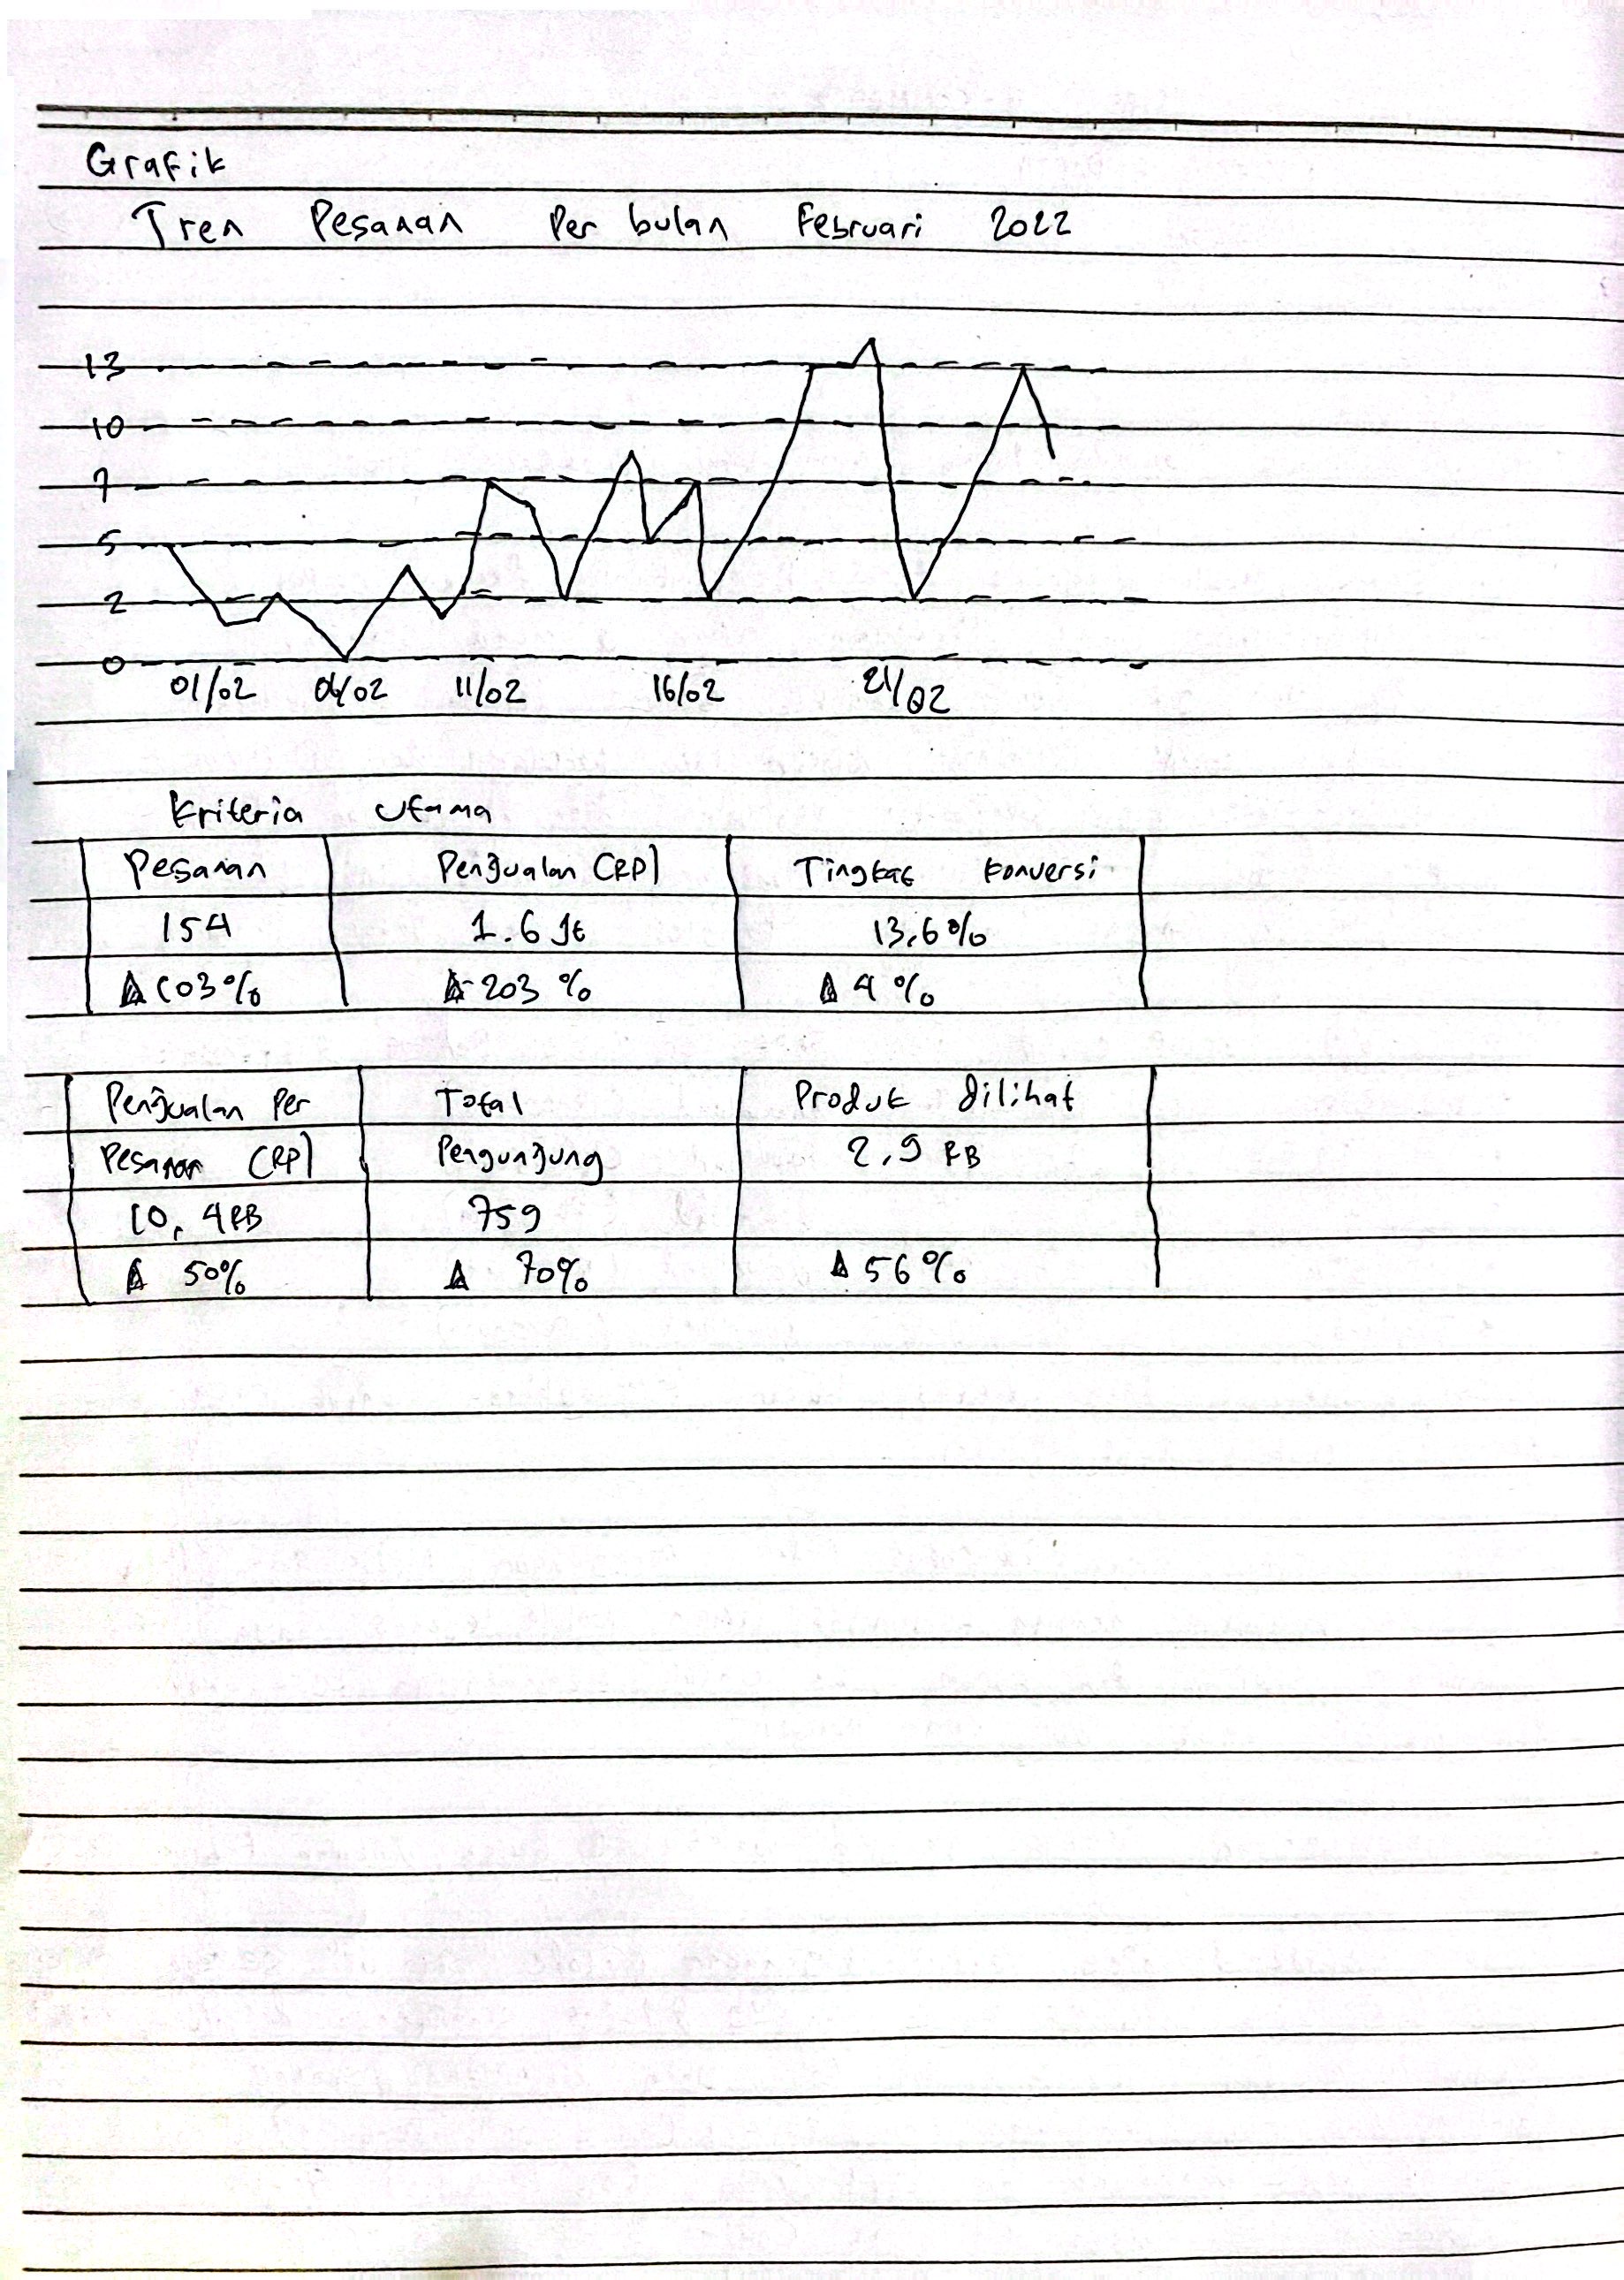 Grafik
Tren Pesanan Per bulan Februari 2022
13
10
7
5
2
0
01/02 06/02 11/02 16/02 21/02
Kriteria Utama
Pesanan Penjualan (RP) Tingkat Konversi
154 1.6 Jt 13,6%
▲ 103% ▲ 203 % ▲ 4 %
Penjualan Per Total Produk dilihat
Pesanan (RP) Pengunjung 2,9 RB
10,4RB 759
▲ 50% ▲ 70% ▲ 56%